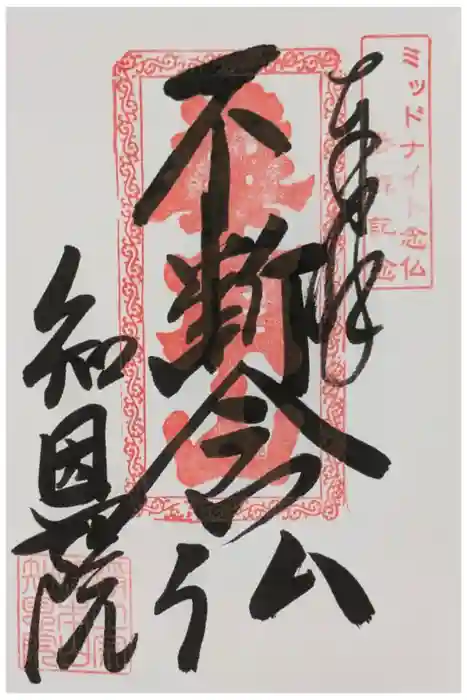 ミッドナイト念仏
記念
奉拝
華頂山
不断念仏
知恩院